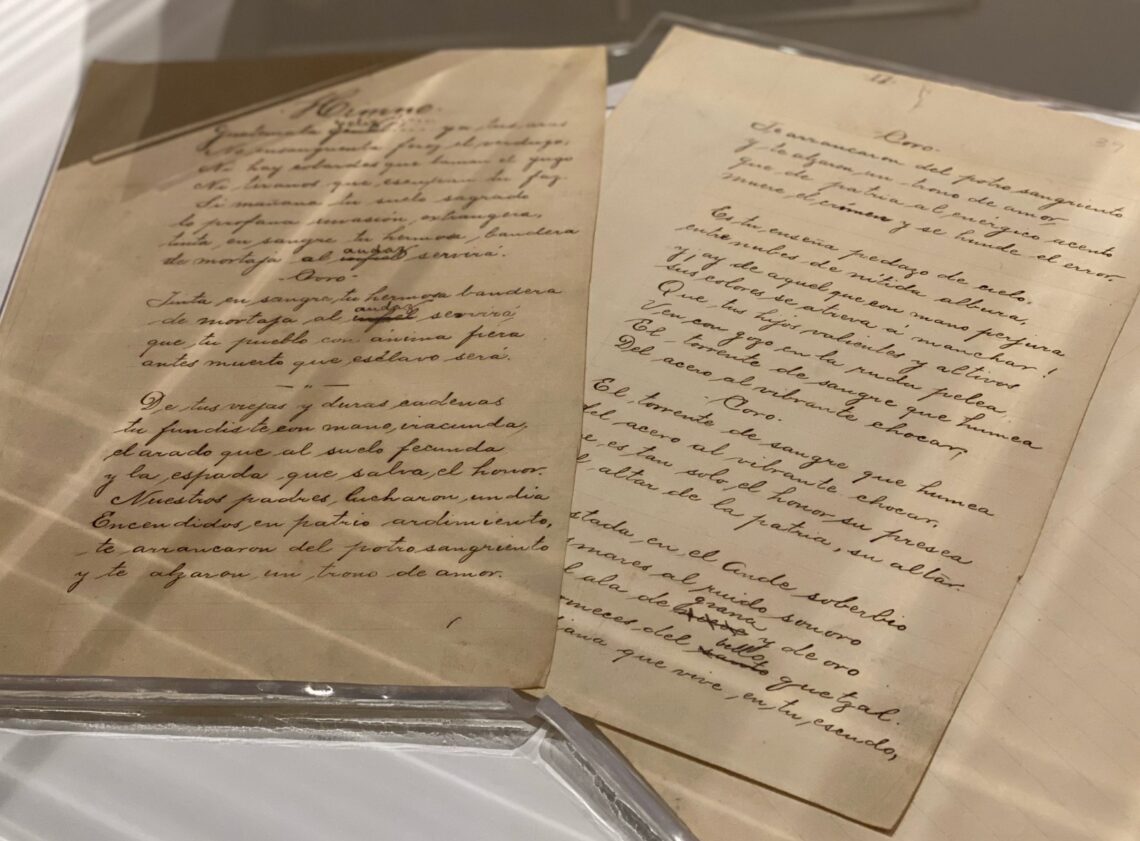 Himno.
Guatemala ya tus aras
No ensangrienta feroz el verdugo,
No hay cobardes que laman el yugo
No tiranos que escupan tu faz.
Si mañana tu suelo sagrado
lo profana invasión extrangera,
tinta en sangre tu hermosa bandera
de mortaja al audaz servirá.
Coro
Tinta en sangre tu hermosa bandera
de mortaja al audaz servirá
que tu pueblo con ánima fiera
antes muerto que esclavo será.
De tus viejas y duras cadenas
tu fundiste con mano iracunda,
el arado que al suelo fecunda
y la espada que salva el honor.
Nuestros padres lucharon un día
Encendidos en patrio ardimiento,
te arrancaron del potro sangriento
y te alzaron un trono de amor.
II
39
Coro.
Te arrancaron del potro sangriento
y te alzaron un trono de amor
que de patria al enérgico acento
muere el crimen y se hunde el error.
Es tu enseña pedazo de cielo
entre nubes de nítida albura,
y ¡ay de aquel que con mano perjura
sus colores se atreva á manchar!
Que tus hijos valientes y altivos
Ven con gozo en la ruda pelea
El torrente de sangre que humea
Del acero al vibrante chocar,
Coro.
El torrente de sangre que humea
del acero al vibrante chocar,
es tan solo el honor su presea
altar de la patria, su altar.
stada en el Ande soberbio
mares al ruido sonoro
ala de grana y de oro
meces del bello quetzal.
iana que vive en tu escudo,